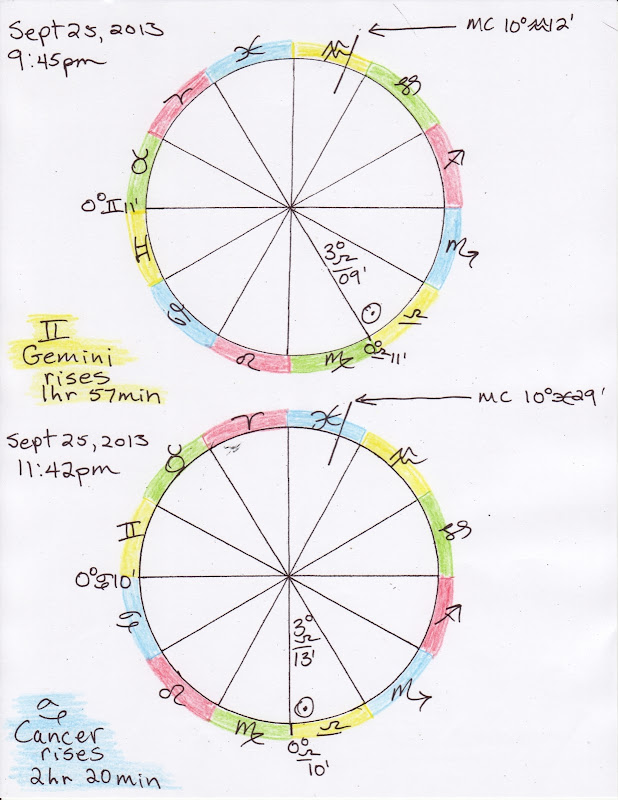 Sept 25, 2013
9:45pm
MC 10°♒12'
♓ ♒
♈ ♑
♉ ♐
0°♊11'
♊ ♏
3°
♎
09'
♋ ♎
♌ ♍ 0°♎11'
☉
♊
Gemini
rises
1hr 57min
Sept 25, 2013
11:42pm
MC 10°♓29'
♈ ♓
♉ ♒
♊ ♑
0°♋10'
♋ ♐
3°
♎
13'
♌ ♏
☉
♍ ♎
0°
♎
10'
♋
Cancer
rises
2hr 20min